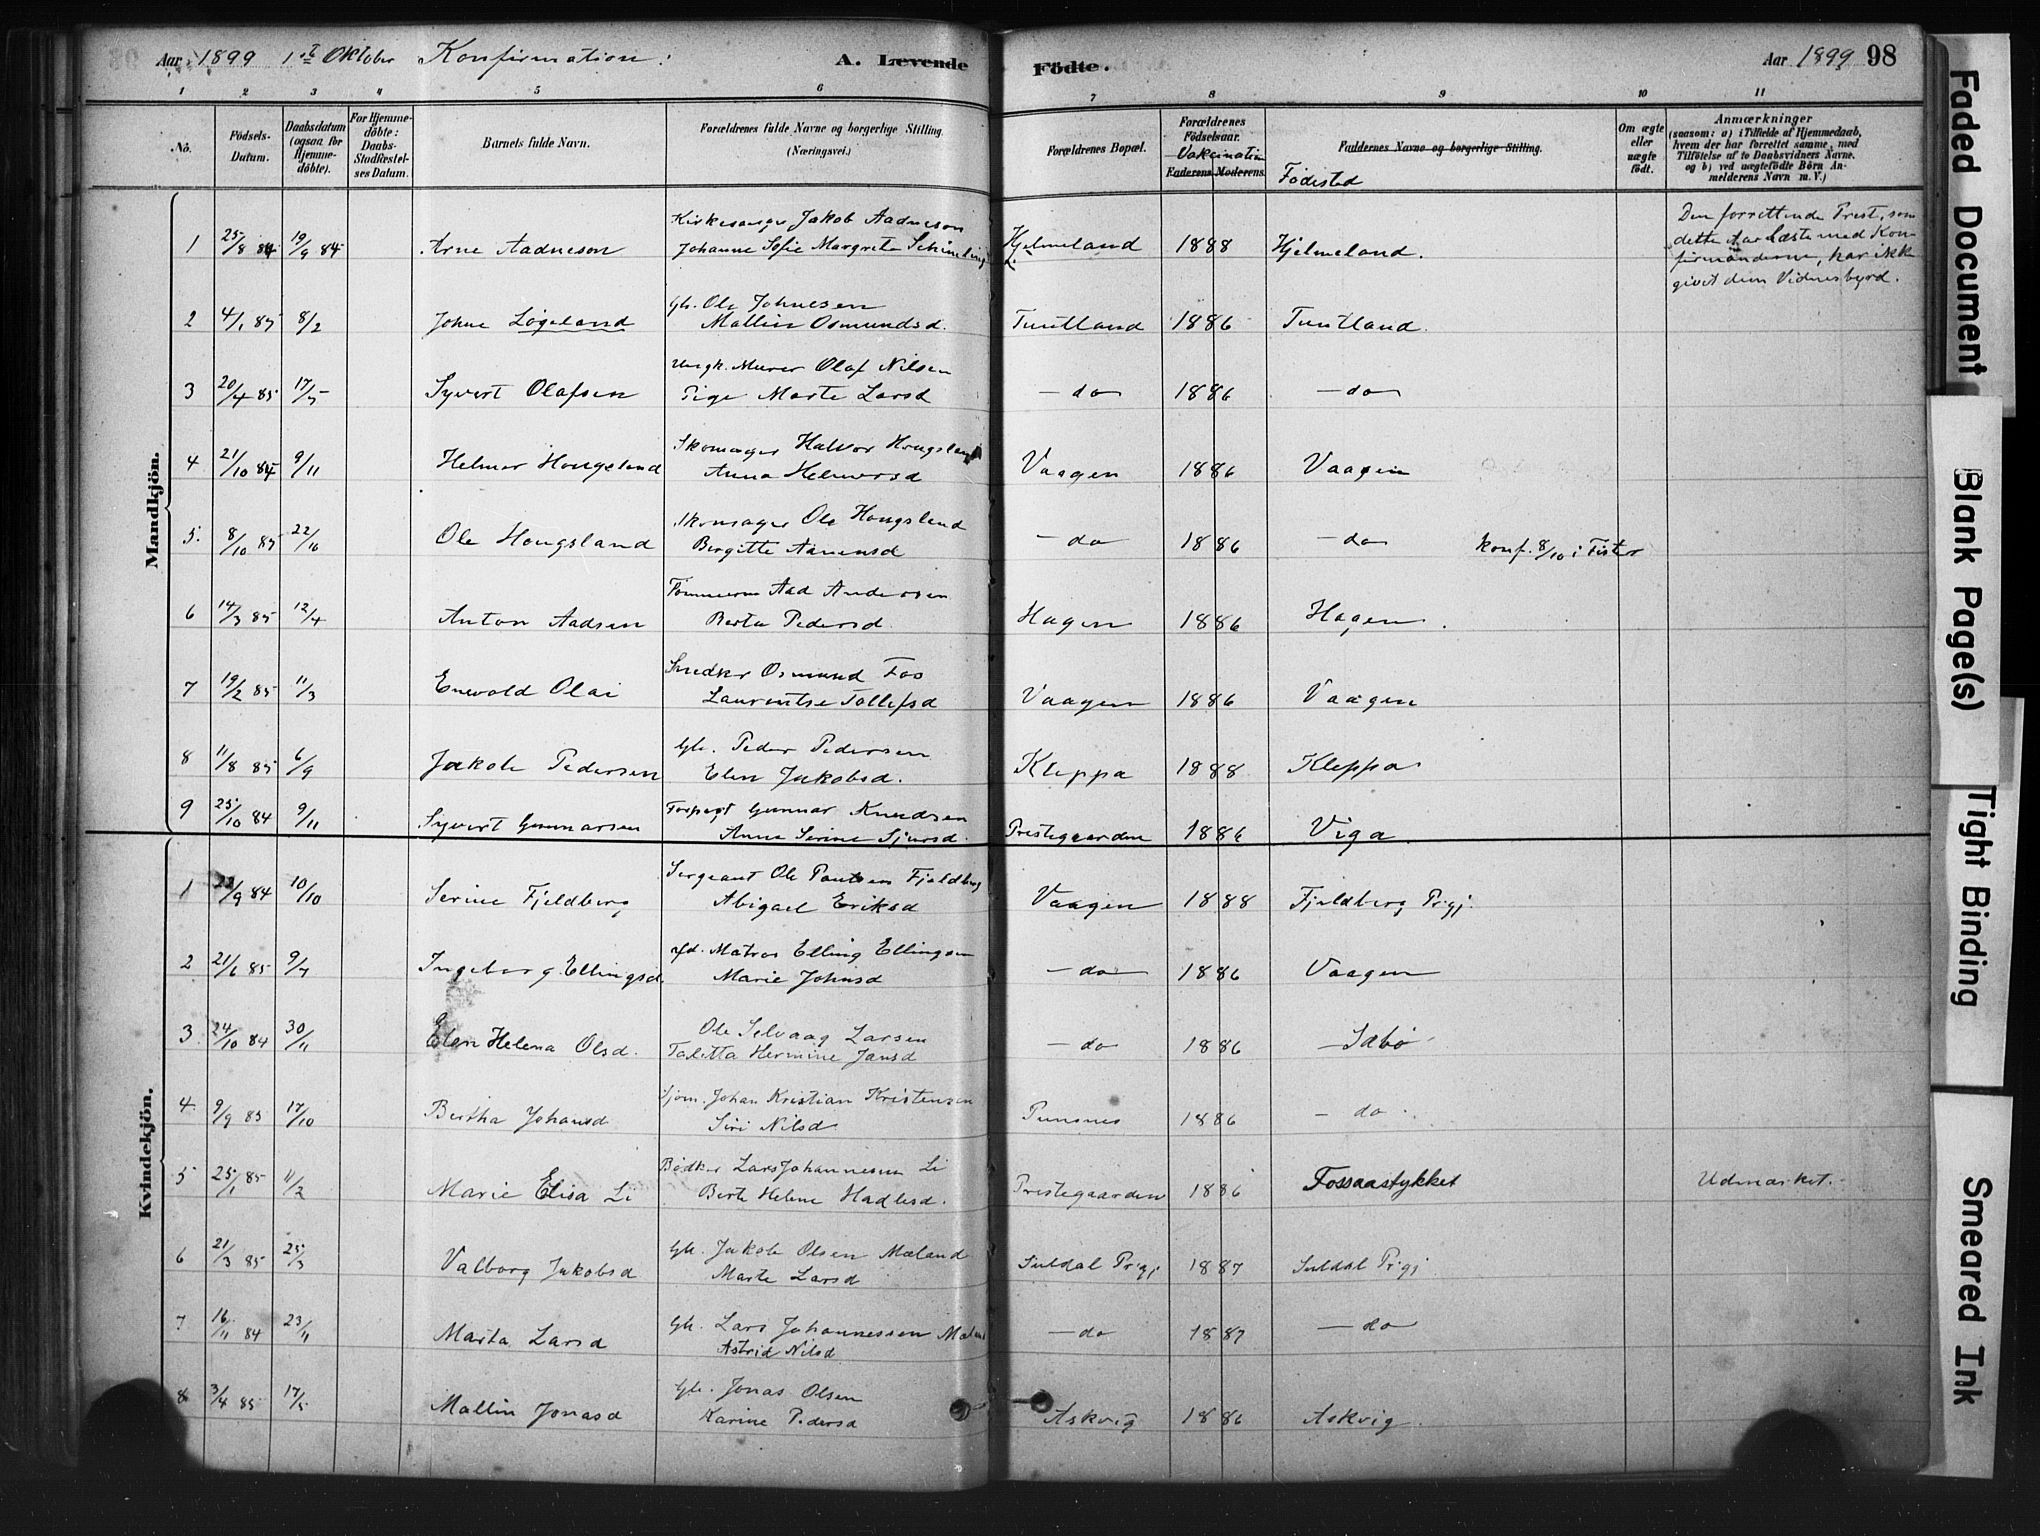 Aar 1899 1st Oktober Konfirmation. A. Levende Födte. Aar 1899 98
1 2 3 4 5 6 7 8 9 10 11
No. Födsels-Datum. Daabsdatum (ogsaa for Hjemme-döbte). For Hjemme-döbte: Daabs-Stadfæstel-ses Datum. Barnets fulde Navn. Forældrenes fulde Navne og borgerlige Stilling. (Næringsvei.) Forældrenes Bopæl. Forældrenes Födselsaar. Vakcination Faderens Moderens. Faddernes Navne og borgerlige Stilling. Födested Om ægte eller uægte födt. Anmærkninger (saasom: a) i Tilfælde af Hjemmedaab, hvem der har forrettet samme, med Tilföielse af to Daabsvidners Navne. og b) ved uægtefödte Börn Anmelderens Navn m. V.)
Mandkjön.
1 25/8 84 19/9 84 Arne Aadneson Kirkesanger Jakob Aadneson Johanne Sofie Margrete Hjelmeland 1888 Hjelmeland. Den forrettende Prest, som dette Aar læste med Konfirmanderne, har ikke givet dem Vidnesbyrd.
2 4/1 85 8/2 Johne Løgeland Gb. Ole Johnesen Mallin Osmundsd. Tuntland 1886 Tuntland.
3 20/4 85 17/5 Syvert Olafsen Ungk. Murer Olaf Nilsen Pige Marte Larsd — do 1886 — do
4 21/10 84 9/11 Helmer Hougsland Skomager Halvor Hougsland Anna Helmersd Vaagen 1886 Vaagen
5. 8/10 85 22/10 Ole Hougsland Skomager Ole Hougsland Bergitte — do 1886 — do konf. 8/10 i Fister
6 14/3 85 12/4 Anton Aadsen Tømmerm Aad Andersen Berta Pedersd. Hagen 1886 Hagen.
7 19/2 85 11/3 Enevold Olai Snedker Osmund Fos Laurentse Tollefsd Vaagen 1886 Vaagen
8 11/8 85 6/9 Jakob Pedersen Gb. Peder Pedersen Elen Jakobsd. Kleppa 1888 Kleppa
9 25/10 84 9/11 Syvert Gunnarsen Forpagt Gunnar Knudsen Anna Serine Sjursd. Prestegaarden 1886 Viga
Kvindekjön.
1 /9 84 10/10 Serine Fjeldberg Sergeant Ole Fjeldberg Abigael Eriksd Vaagen 1888 Fjeldberg Prgj.
2 21/6 85 9/7 Ingeborg Ellingsd. afd. Matros Elling Ellingsen Marie Johnsd — do 1886 Vaagen
3 24/10 84 30/11 Elen Helena Olsd. Ole Selvaag Larsen Taletta Hermine Jansd — do 1886 Sæbø
4 9/9 85 17/10 Bertha Johansd Sjøm. Johan Kristian Kristensen Siri Nilsd. Pundsnes 1886 — do
5 25/1 85 11/2 Marie Elisa Li Bødker Lars Johannesen Li Berte Helene Hadlesd. Prestegaarden 1886 Fossaastykket Udmærket.
6 21/3 85 25/3 Valborg Jakobsd Gb. Jakob Olsen Mæland Marte Larsd Suldal Prgj 1887 Suldal Prgj
7 16/11 84 23/11 Marta Larsd Gb. Lars Johannessen Astrid Nilsd — do 1887 — do
8 3/4 85 17/5 Mallin Jonasd Gb. Jonas Olsen Karine Pedersd Askvig 1886 Askvig.
Faded Document
Blank Page(s)
Tight Binding
Smeared Ink